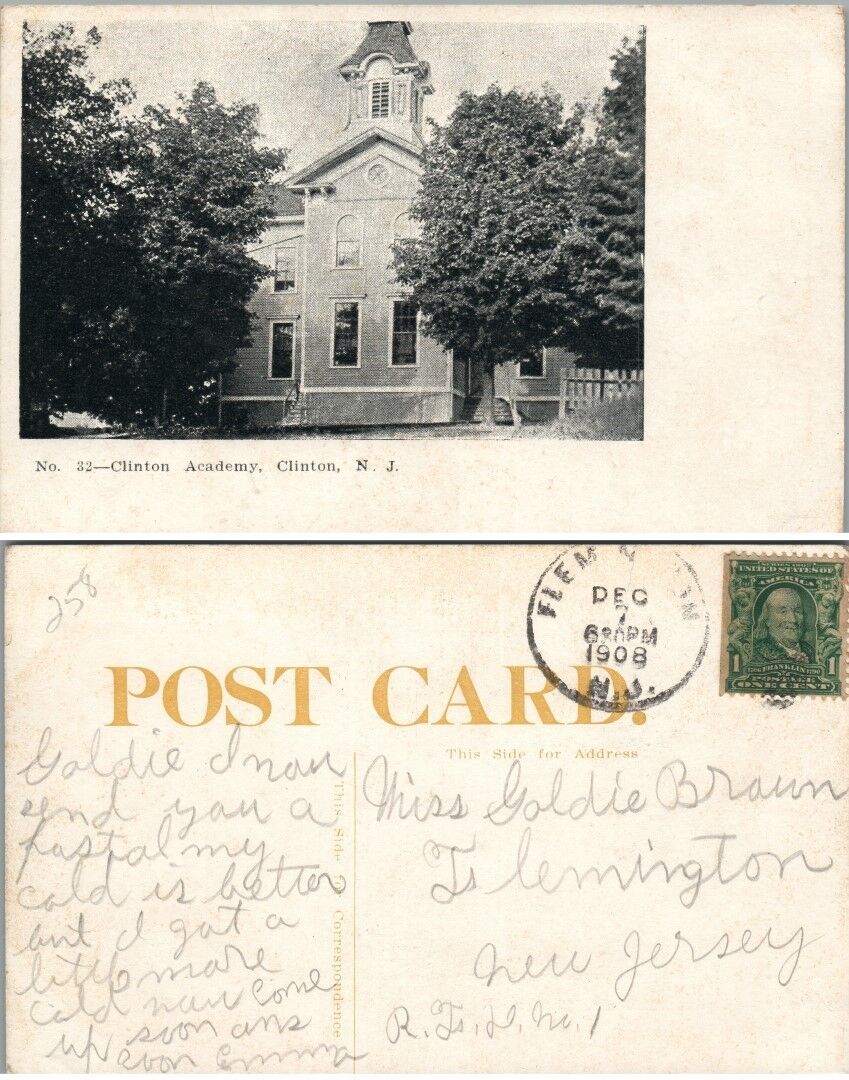 No. 32—Clinton Academy, Clinton, N. J.
258
FLEMINGTON
DEC
7
630PM
1908
N.J.
SERIES 1902
UNITED STATES OF
AMERICA
1 1706 FRANKLIN 1790 1
POSTAGE
ONE CENT
POST CARD.
This Side for Address
This Side for Correspondence
Goldie I now
send you a
postal my
cold is better
but I got a
little more
cold now come
up soon ans
up soon Emma
Miss Goldie Brown
Flemington
New Jersey
R. F. D. No. 1